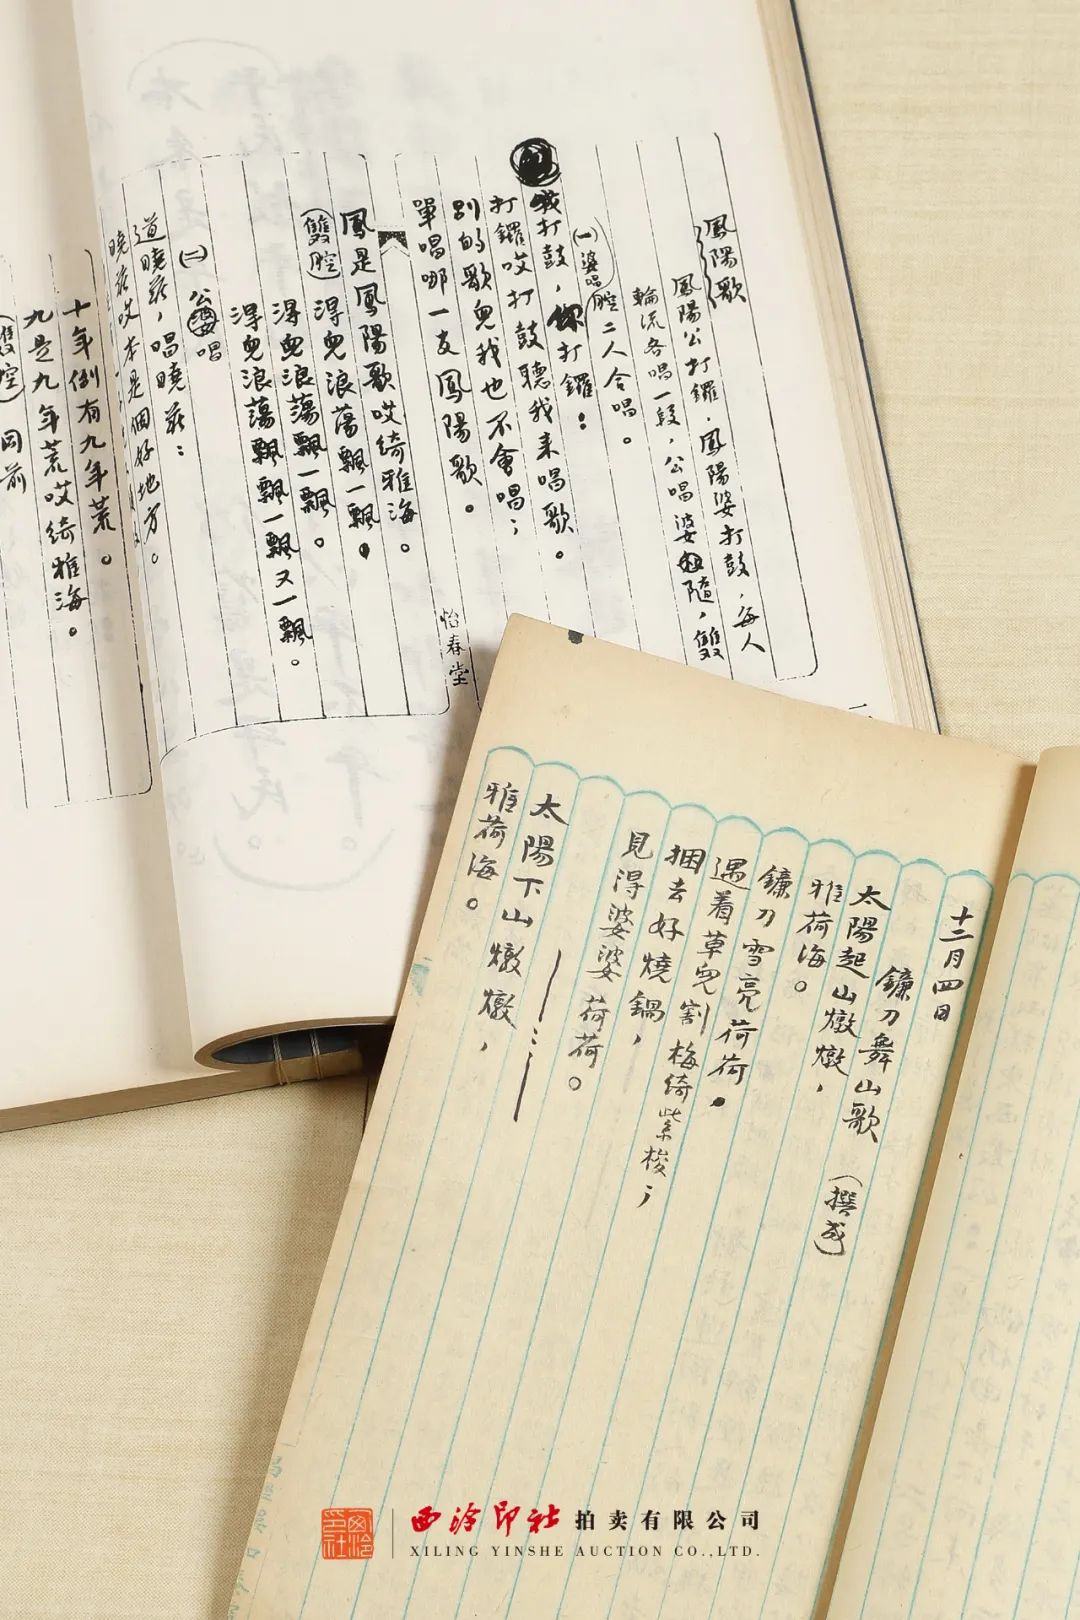 鳳陽歌
鳳陽公打鑼，鳳陽婆打鼓，每人
輪流各唱一段，公唱婆隨，雙
腔二人合唱。
(一)婆唱
我打鼓，你打鑼：
打鑼哎打鼓聽我来唱歌。
別的歌兒我也不會唱；
單唱哪一支鳳陽歌。
鳳是鳳陽歌哎綺雅海。
(雙腔)得兒浪蕩飄一飄，
得兒浪蕩飄一飄。
得兒浪蕩飄飄一飄又一飄。
(二)公唱
道曉莊，唱曉莊：
曉莊哎本是個好地方。
十年倒有九年荒。
九是九年荒哎綺雅海。
(雙腔)同前
怡春堂
十二月四日
鐮刀舞山歌 (撰成)
太陽起山燉燉，
雅荷海。
鐮刀雪亮荷荷，
遇着草兒割梅綺紫梭；
捆去好燒鍋，
見得婆婆荷荷。
太陽下山燉燉，
雅荷海。
西泠印社拍卖有限公司
XILING YINSHE AUCTION CO.,LTD.